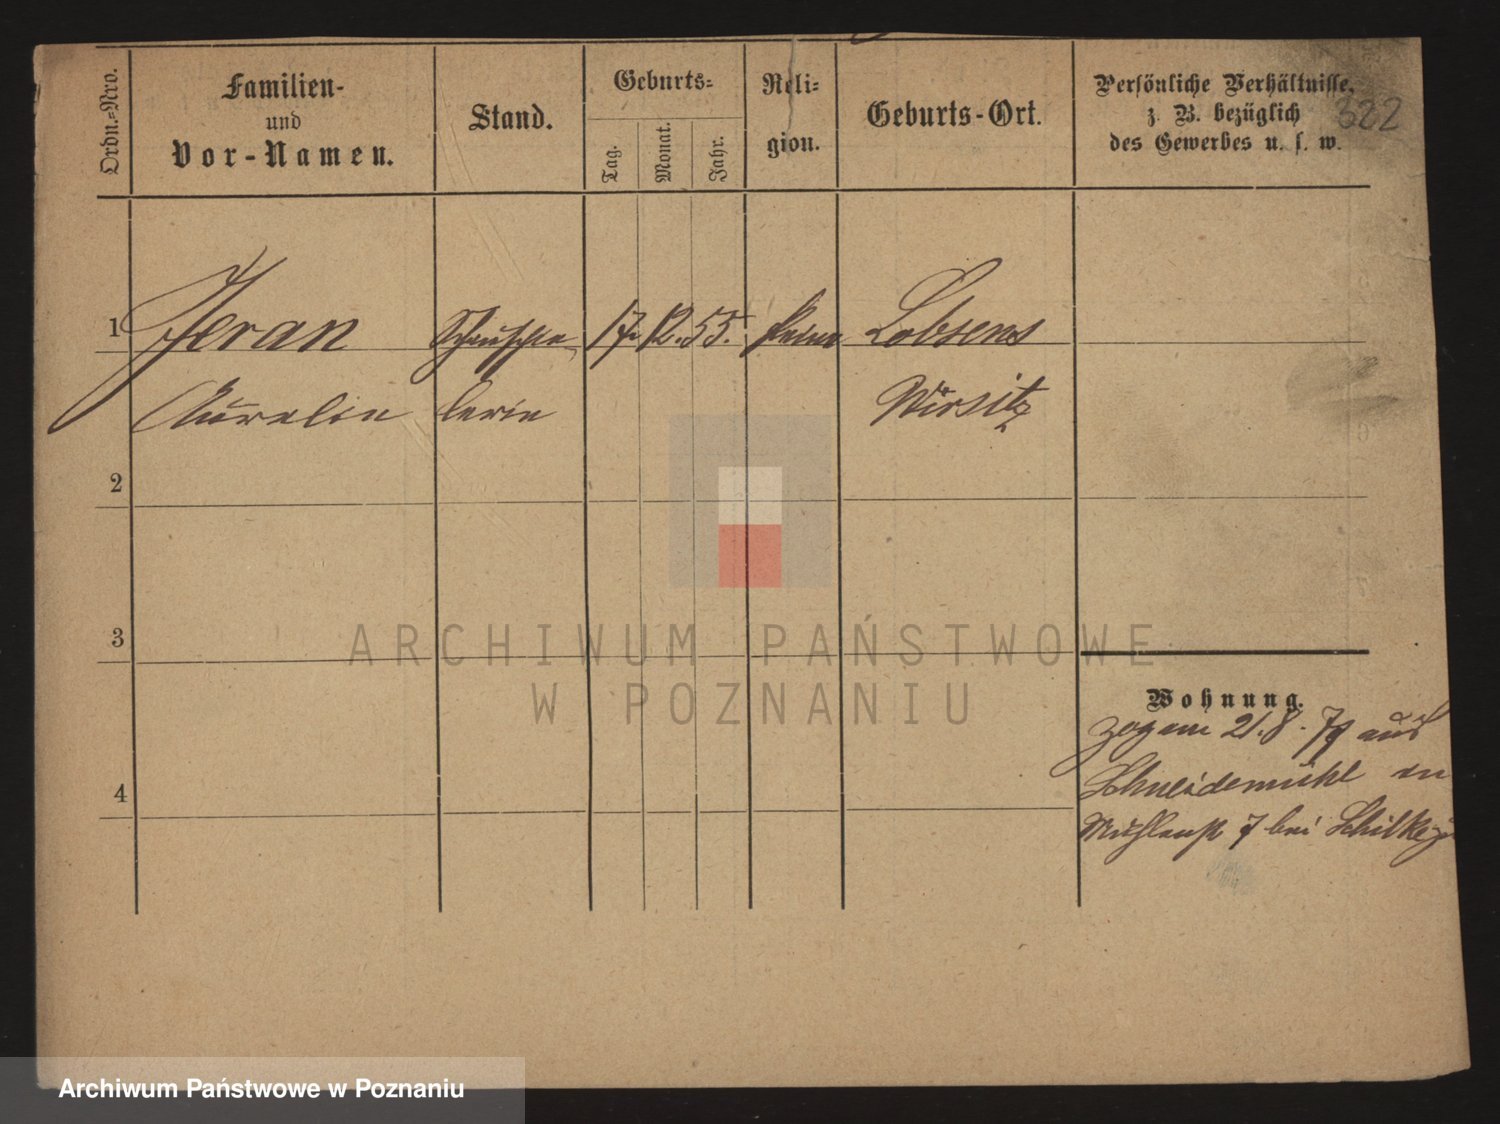 Ordn.=Nro.
Familien-
und
Vor-Namen.
Stand.
Geburts=
Tag.
Monat.
Jahr.
Reli=
gion.
Geburts-Ort.
Persönliche Verhältnisse,
z. B. bezüglich
des Gewerbes u. s. w.
322
1
Jeran
Schauspie
17. 12. 55.
Lobsens
Aurelie
lerin
Wirsitz
2
3
4
Wohnung.
zog am 21.8.79 aus
Schneidemühl in
Mühlenstr 7 bei Schilke
ARCHIWUM PAŃSTWOWE
W POZNANIU
Archiwum Państwowe w Poznaniu